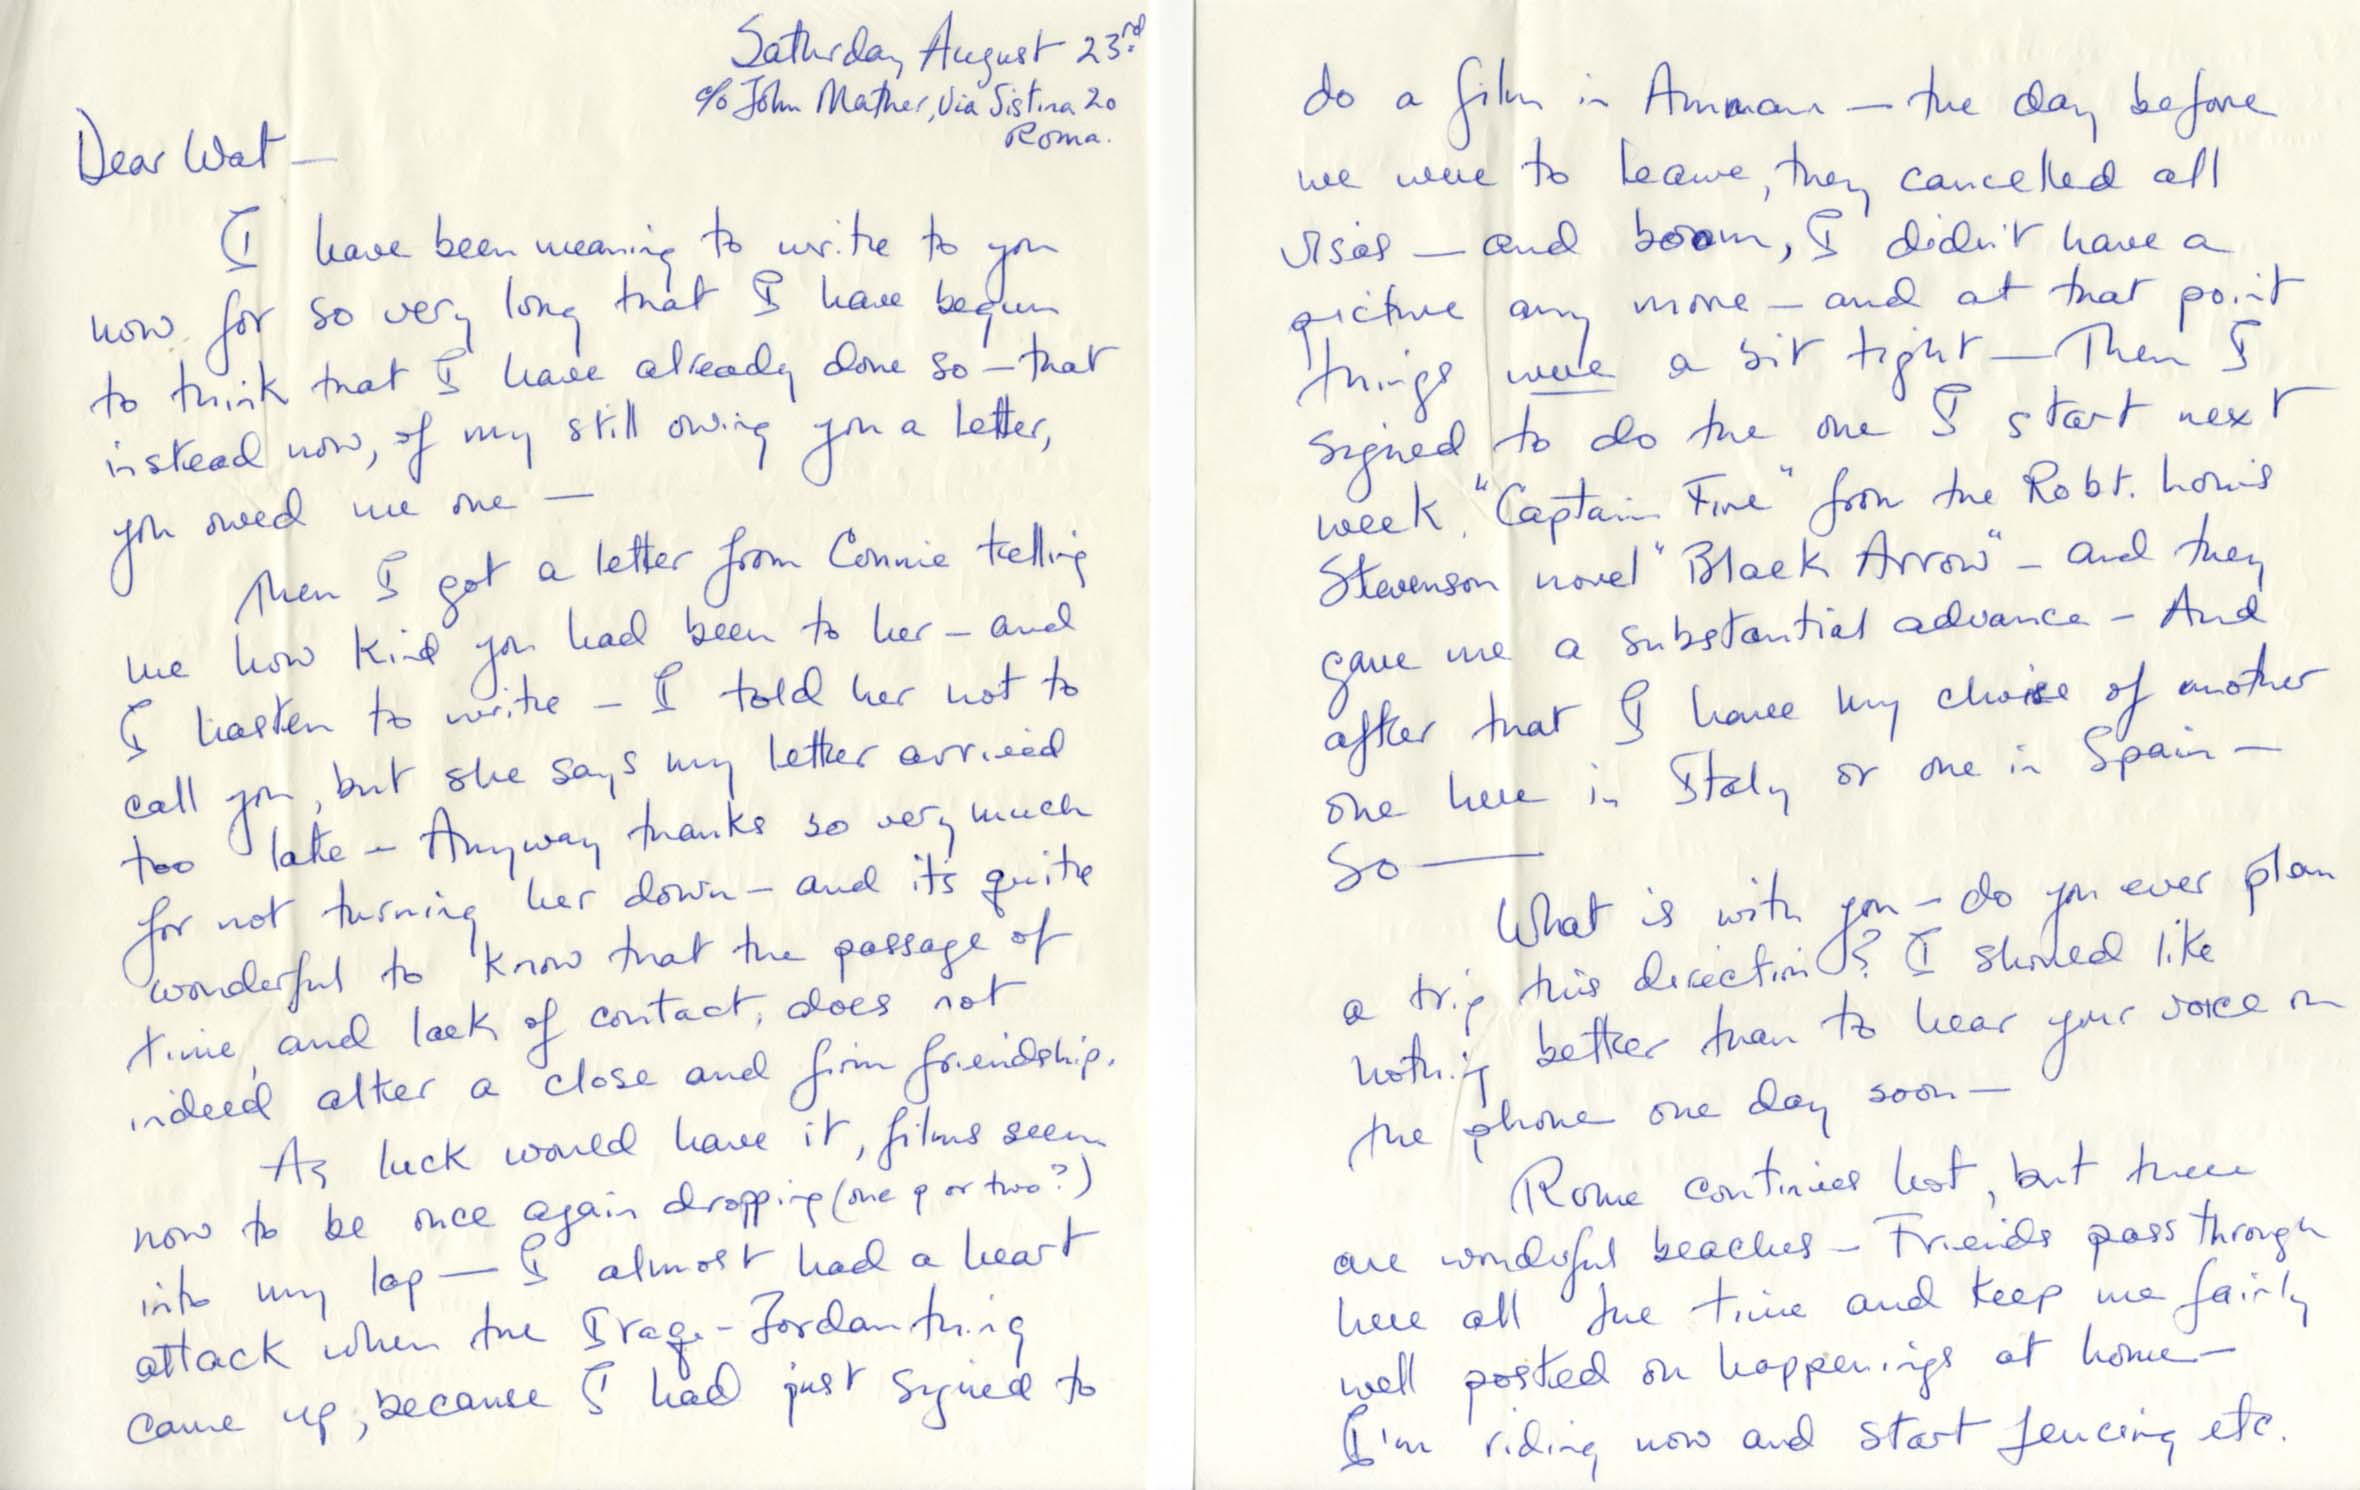 Saturday August 23rd.
c/o John Mather, Via Sistina 20
Roma.
Dear Wat —
I have been meaning to write to you
now for so very long that I have begun
to think that I have already done so — that
instead now, of my still owing you a letter,
you owed me one —
Then I got a letter from Connie telling
me how kind you had been to her — and
I hasten to write — I told her not to
call you, but she says my letter arrived
too late — Anyway thanks so very much
for not turning her down — and it's quite
wonderful to know that the passage of
time, and lack of contact, does not
indeed alter a close and firm friendship.
As luck would have it, films seem
now to be once again dropping (one p or two?)
into my lap — I almost had a heart
attack when the Iraq-Jordan thing
came up, because I had just signed to
do a film in Amman — the day before
we were to leave, they cancelled all
visas — and boom, I didn't have a
picture any more — and at that point
things were a bit tight — Then I
signed to do the one I start next
week. "Captain Fire" from the Robt. Louis
Stevenson novel "Black Arrow" — and they
gave me a substantial advance — And
after that I have my choise of another
one here in Italy or one in Spain —
So —
What is with you — do you ever plan
a trip this direction? I should like
nothing better than to hear your voice on
the phone one day soon —
Rome continues hot, but there
are wonderful beaches — Friends pass through
here all the time and keep me fairly
well posted on happenings at home —
I'm riding now and start fencing etc.